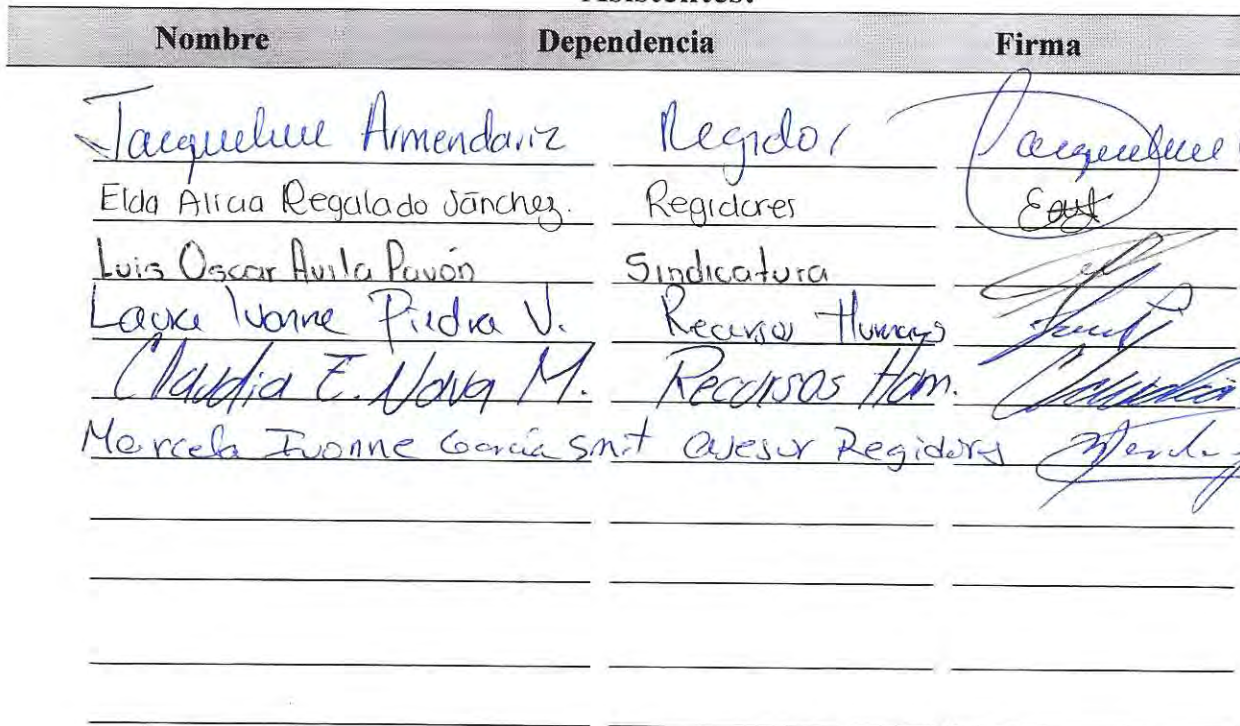 Nombre Dependencia Firma
Jacqueline Armendariz Regidor Jacqueline
Elda Alicia Regalado Sánchez. Regidores
Luis Oscar Avila Pavón Sindicatura
Laura Ivonne Piedra V. Recursos Humanos
Claudia E. Nova M. Recursos Hum. Claudia
Marcela Ivonne García Smit asesor Regidores